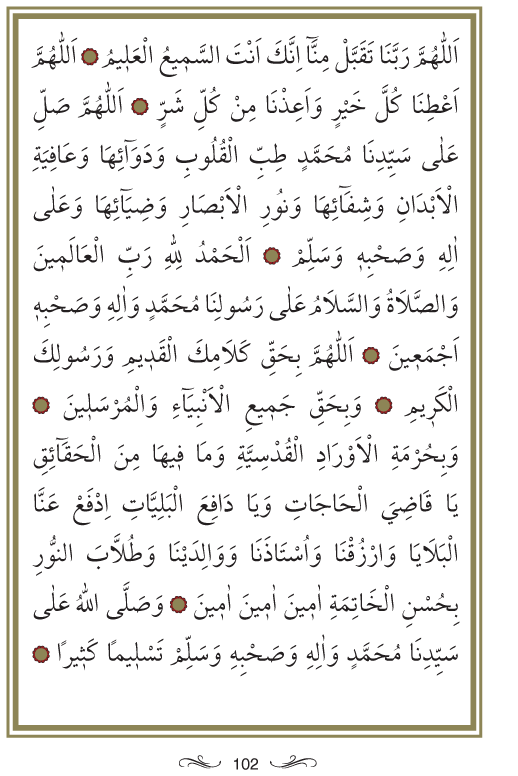 اَللّٰهُمَّ رَبَّنَا تَقَبَّلْ مِنَّٓا اِنَّكَ اَنْتَ السَّمٖيعُ الْعَلٖيمُ ۞ اَللّٰهُمَّ
اَعْطِنَا كُلَّ خَيْرٍ وَاَعِذْنَا مِنْ كُلِّ شَرٍّ ۞ اَللّٰهُمَّ صَلِّ
عَلٰى سَيِّدِنَا مُحَمَّدٍ طِبِّ الْقُلُوبِ وَدَوَٓائِهَا وَعَافِيَةِ
الْاَبْدَانِ وَشِفَٓائِهَا وَنُورِ الْاَبْصَارِ وَضِيَٓائِهَا وَعَلٰى
اٰلِهٖ وَصَحْبِهٖ وَسَلِّمْ ۞ اَلْحَمْدُ لِلّٰهِ رَبِّ الْعَالَمٖينَ
وَالصَّلَاةُ وَالسَّلَامُ عَلٰى رَسُولِنَا مُحَمَّدٍ وَاٰلِهٖ وَصَحْبِهٖ
اَجْمَعٖينَ ۞ اَللّٰهُمَّ بِحَقِّ كَلَامِكَ الْقَدٖيمِ وَرَسُولِكَ
الْكَرٖيمِ ۞ وَبِحَقِّ جَمٖيعِ الْاَنْبِيَٓاءِ وَالْمُرْسَلٖينَ ۞
وَبِحُرْمَةِ الْاَوْرَادِ الْقُدْسِيَّةِ وَمَا فٖيهَا مِنَ الْحَقَٓائِقِ
يَا قَاضِيَ الْحَاجَاتِ وَيَا دَافِعَ الْبَلِيَّاتِ اِدْفَعْ عَنَّا
الْبَلَايَا وَارْزُقْنَا وَاُسْتَاذَنَا وَوَالِدَيْنَا وَطُلَّابَ النُّورِ
بِحُسْنِ الْخَاتِمَةِ اٰمٖينَ اٰمٖينَ اٰمٖينَ ۞ وَصَلَّى اللّٰهُ عَلٰى
سَيِّدِنَا مُحَمَّدٍ وَاٰلِهٖ وَصَحْبِهٖ وَسَلِّمْ تَسْلٖيمًا كَثٖيرًا ۞
102